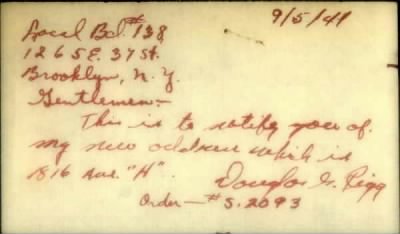 9/5/41
Local Bd. #138
1265 E. 37 St.
Brooklyn, N.Y.
Gentlemen:-
This is to notify you of
my new address which is
1816 Ave. "H".
Douglas G. Rigg
Order - # S. 2093